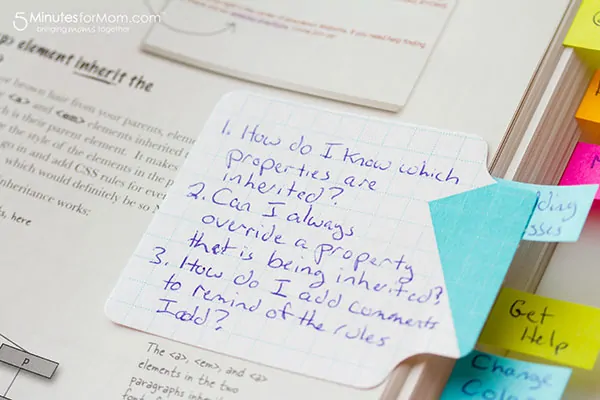 5MinutesforMom.com
bringing moms together
element inherit the
brown hair from your parents,
<a> and <em> elements inherited
is their parent element. It makes
the style of the elements in the
go in and add CSS rules for
which would definitely be so
inheritance works:
here
1. How do I know which
properties are
inherited?
2. Can I always
override a property
that is being inherited?
3. How do I add comments
to remind of the rules
I add?
p
The <a>, <em>, and <a>
elements in the two
paragraphs
Get
Help
Change